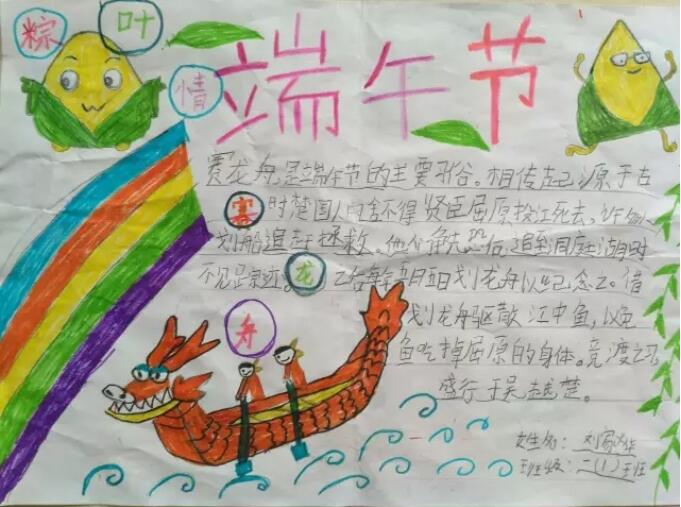 粽
叶
情
端午节
赛龙舟是端午节的主要习俗。相传起源于古
时楚国人因舍不得贤臣屈原投江死去，许多人
划船追赶拯救。他们争先恐后，追至洞庭湖时
不见踪迹。 之后每年五月五日划龙舟以纪念之。借
划龙舟驱散江中鱼，以免
鱼吃掉屈原的身体。竞渡之习
盛行于吴越楚。
赛
龙
舟
姓名：刘家
班级：二（1）班